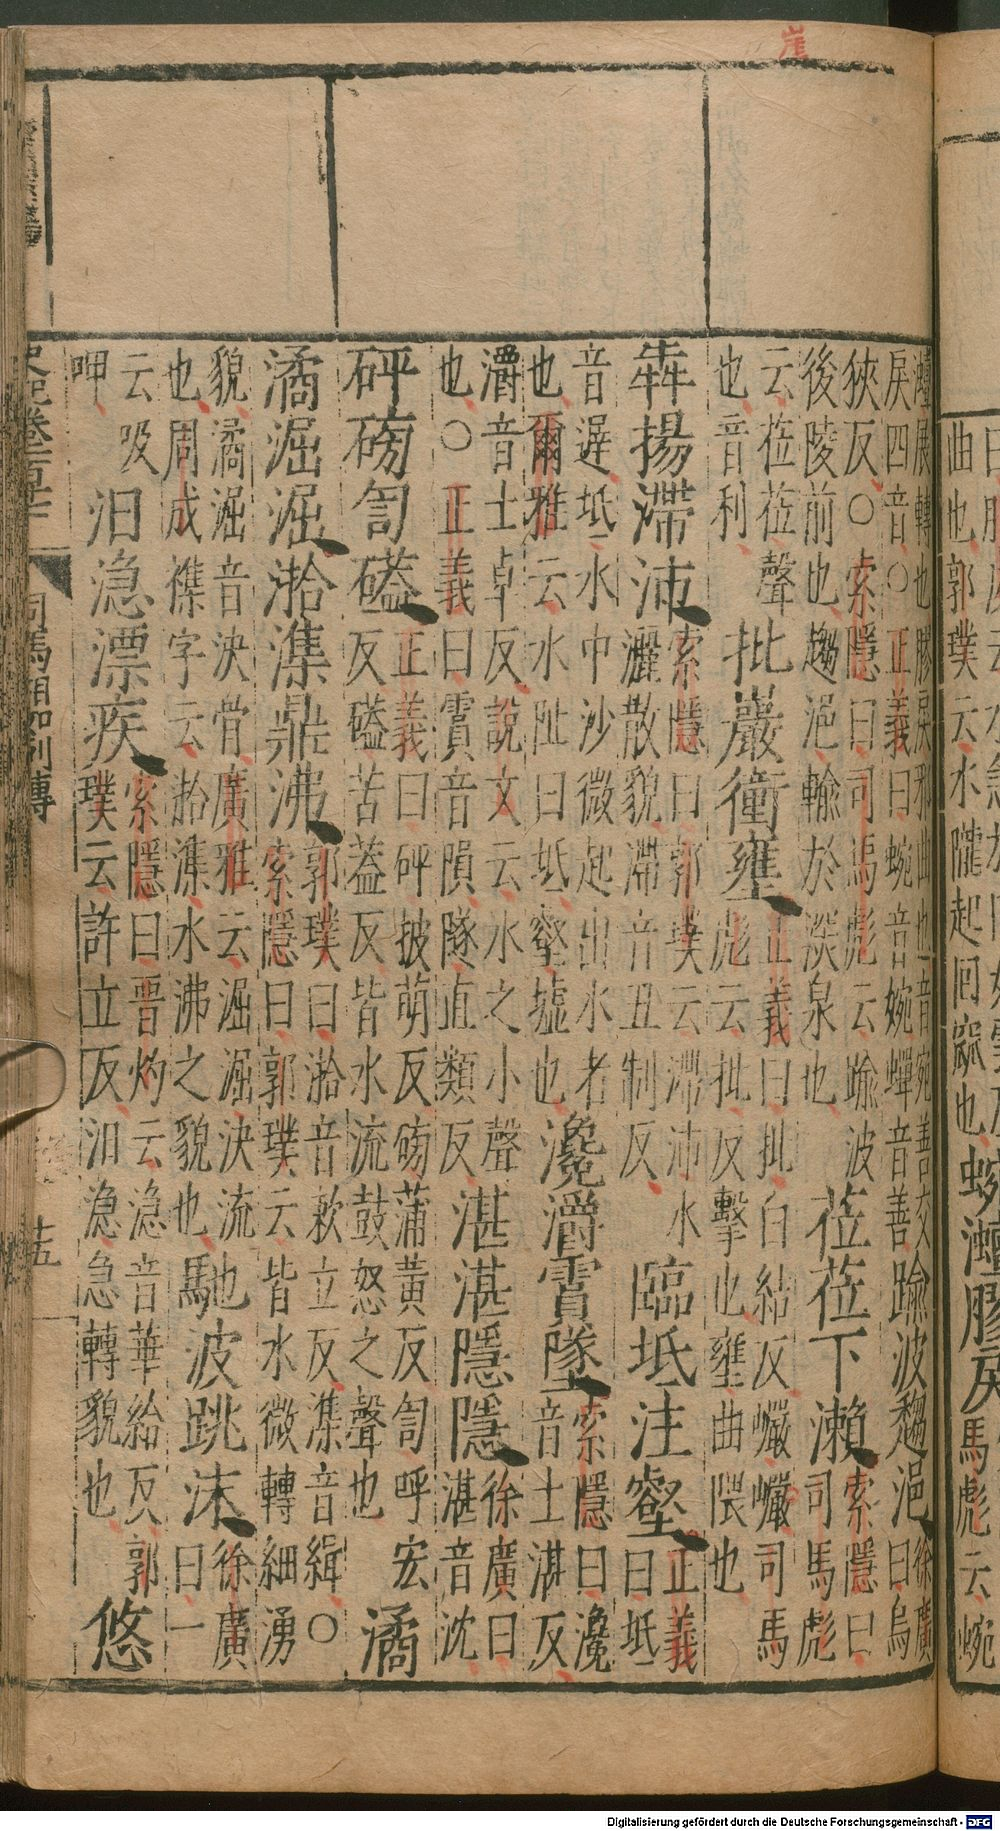 崖
曲也郭璞云水隴起回窳也蜿灗膠戾馬彪云蜿
灗展轉也膠戾邪曲也音宛善交
戾四音○正義曰蜿音婉蟬音善踰波趨浥徐廣曰烏
狹反○索隱曰司馬彪云踰波
後陵前也趨浥輸於深泉也莅莅下瀨索隱曰司馬彪
云莅莅聲
也音利批巖衝壅正義曰批白結反巘巘司馬
彪云批反擊也壅曲隈也
犇揚滯沛索隱曰郭璞云滯沛水
灑散貌滯音丑制反臨坻注壑正義曰坻
音遲坻水中沙微起出水者
也爾雅云水阯曰坻壑墟也瀺灂霣墜索隱曰瀺
音士湛反
灂音士卓反說文云水之小聲
也○正義曰霣音隕隊直類反湛湛隱隱徐廣曰
湛音沈
砰磅訇礚正義曰砰披萌反磅蒲黃反訇呼宏
反礚苦蓋反皆水流鼓怒之聲也潏
潏淈淈湁潗鼎沸郭璞曰湁音敕立反潗音緝○
索隱曰郭璞云皆水微轉細湧
貌潏淈音決骨廣雅云淈淈決流也
也周成襍字云拾潗水沸之貌也馳波跳沫徐廣
曰一
云吸
呷汩㴔漂疾索隱曰晋灼云㴔音華給反郭
璞云許立反汩㴔急轉貌也悠
史記卷百十 司馬相如列傳 十五
Digitalisierung gefördert durch die Deutsche Forschungsgemeinschaft - DFG